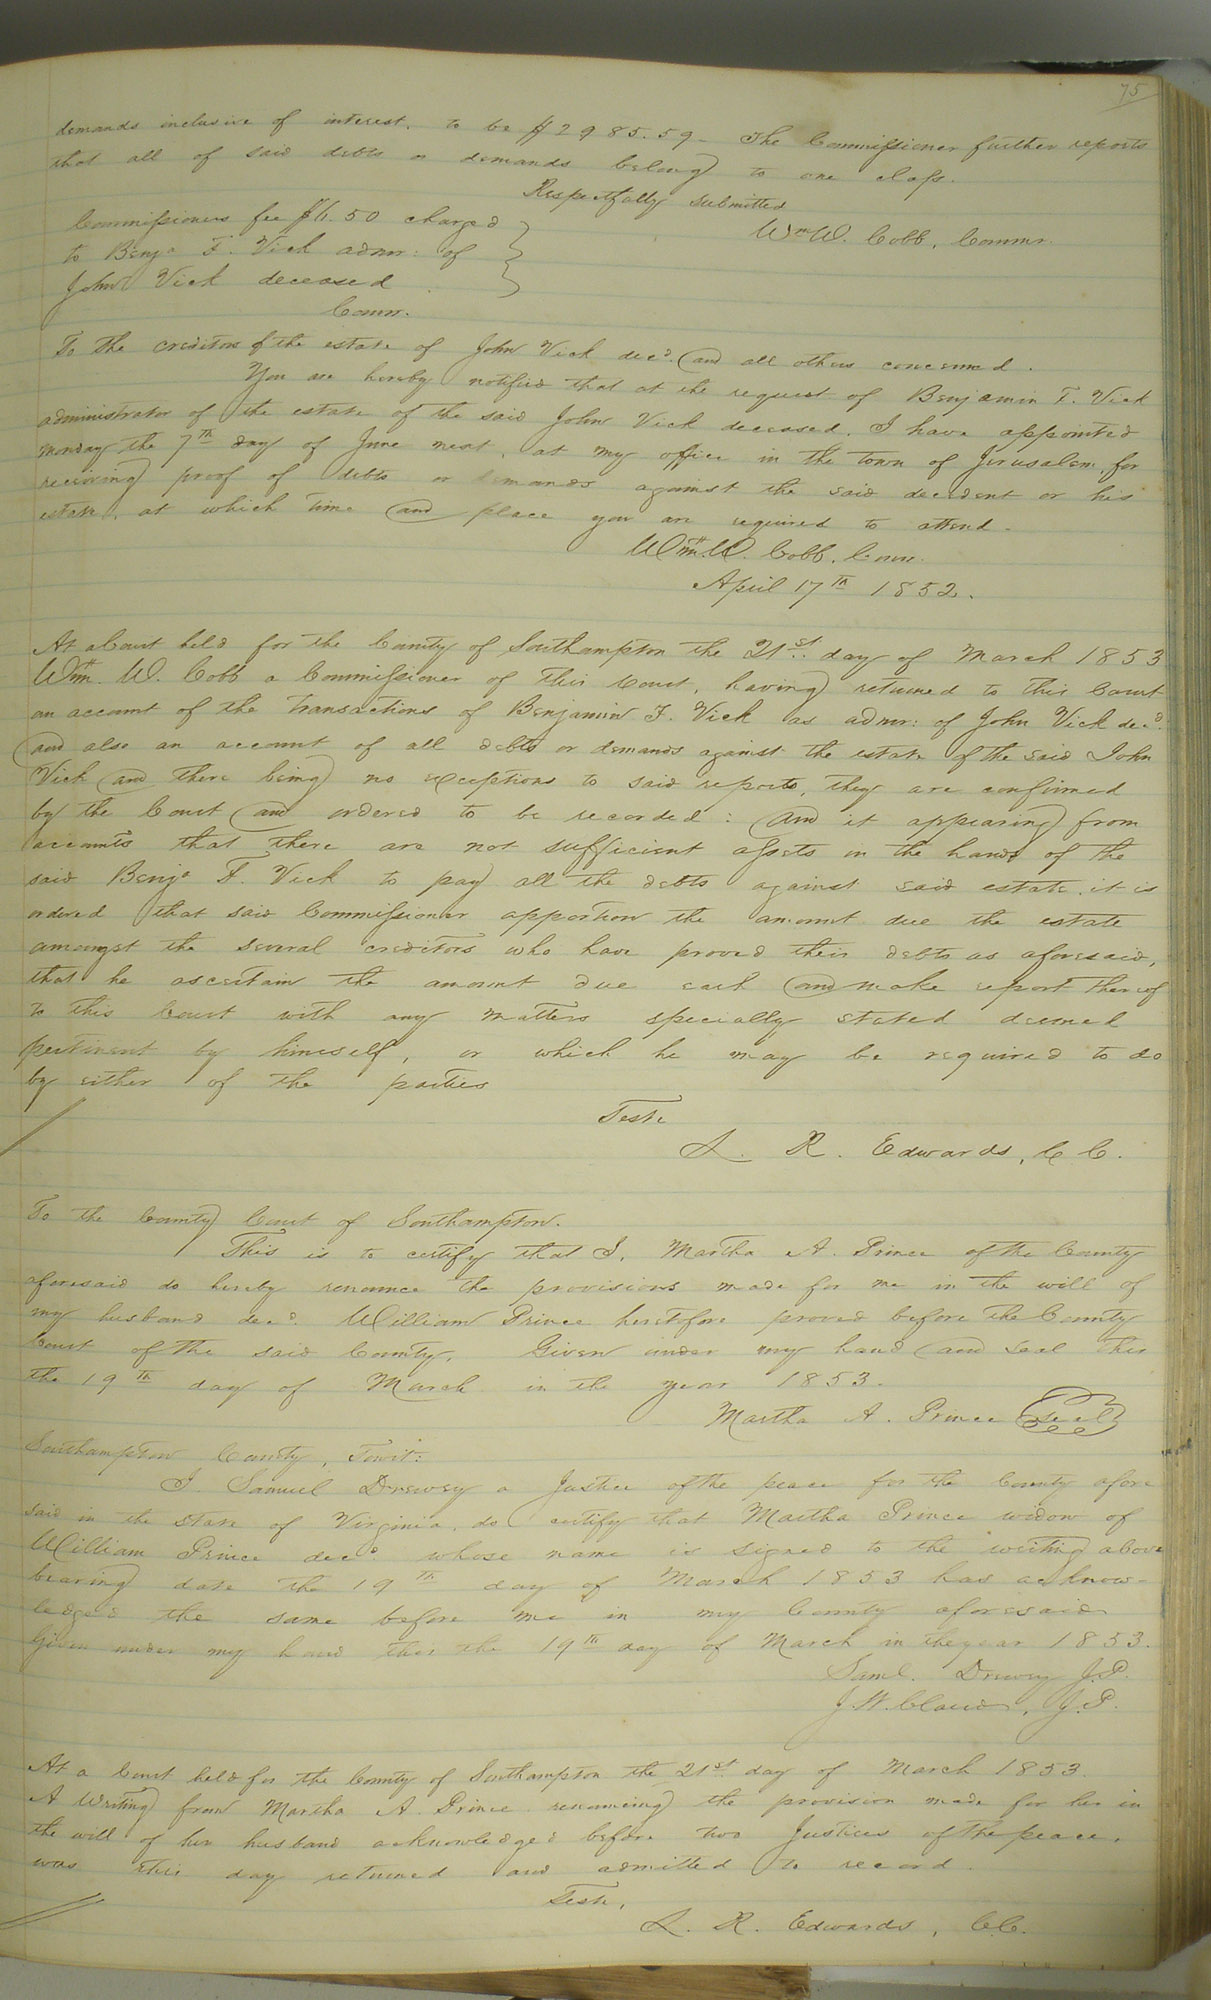 75
demands inclusive of interest, to be $2985.59 - The Commissioner further reports
that all of said debts or demands belong to one class.
Respectfully submitted
Wm W. Cobb, Commr.
Commissioners fee $ .50 charged
to Benja F. Vick admr: of
John Vick deceased
Comr.
To the creditors of the estate of John Vick decd. and all others concerned.
You are hereby notified that at the request of Benjamin F. Vick
administrator of the estate of the said John Vick deceased, I have appointed
monday the 7th day of June next, at my office in the town of Jerusalem, for
receiving proof of debts or demands against the said decedent or his
estate, at which time and place you are required to attend.
Wm. W. Cobb, Comr.
April 17th 1852.
At a Court held for the County of Southampton the 21st day of March 1853
Wm. W. Cobb a Commissioner of this Court, having returned to this Court
an account of the transactions of Benjamin F. Vick as admr: of John Vick decd.
and also an account of all debts or demands against the estate of the said John
Vick and there being no exceptions to said reports, they are confirmed
by the Court and ordered to be recorded: and it appearing from
accounts that there are not sufficient assets in the hands of the
said Benja F. Vick to pay all the debts against said estate, it is
ordered that said Commissioner apportion the amount due the estate
amongst the several creditors who have proved their debts as aforesaid,
that he ascertain the amount due each and make report thereof
to this Court with any matters specially stated deemed
pertinent by himself, or which he may be required to do
by either of the parties
Teste
L. R. Edwards, C. C.
To the County Court of Southampton.
This is to certify that I, Martha A. Prince of the County
aforesaid do hereby renounce the provisions made for me in the will of
my husband decd. William Prince heretofore proved before the County
Court of the said County. Given under my hand and seal this
the 19th day of March in the year 1853.
Martha A. Prince Seal
Southampton County, Towit:
I Samuel Drewry a Justice of the peace for the County afore
said in the State of Virginia, do certify that Martha Prince widow of
William Prince decd whose name is signed to the writing above
bearing date the 19th day of March 1853 has acknow-
ledged the same before me in my County aforesaid
Given under my hand this the 19th day of March in the year 1853.
Saml. Drewry J.P.
J. W. Claud, J.P.
At a Court held for the County of Southampton the 21st day of March 1853.
A Writing from Martha A. Prince renouncing the provision made for her in
the will of her husband acknowledged before two Justices of the peace,
was this day returned and admitted to record.
Teste,
L. R. Edwards, C.C.